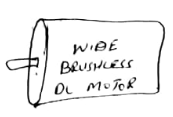 WIBE
BRUSHLESS
DC MOTOR